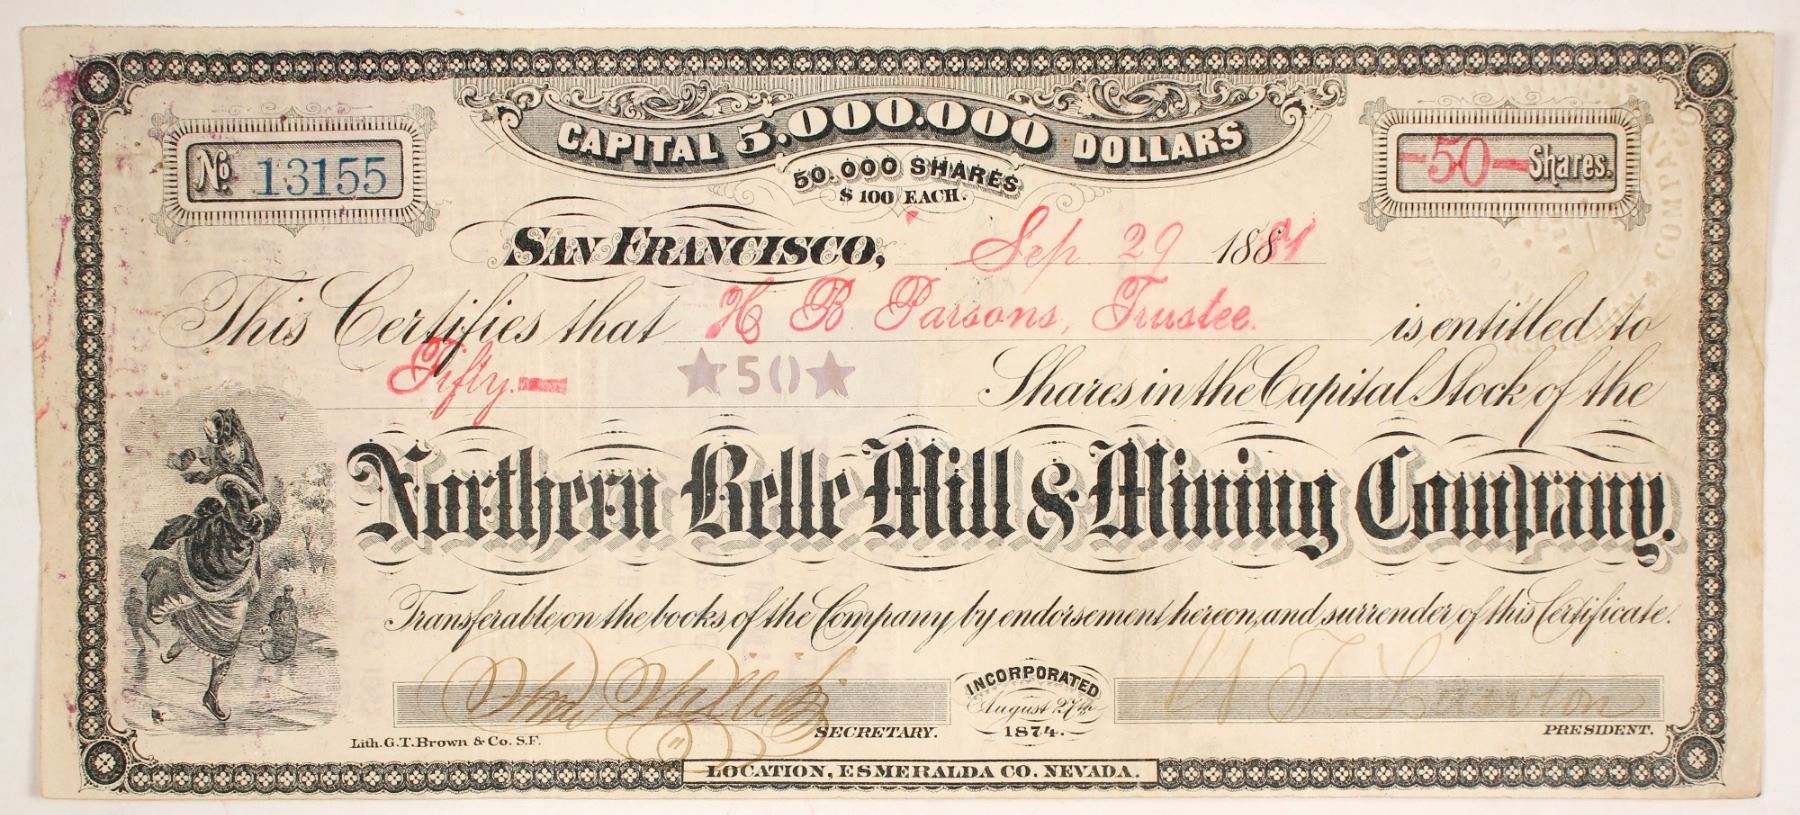 CAPITAL 5.000.000 DOLLARS
No. 13155
50.000 SHARES
$100 EACH.
-50- Shares.
SAN FRANCISCO, Sep 29 188
This Certifies that H B Parsons, Trustee. is entitled to
Fifty.— ★50★ Shares in the Capital Stock of the
Northern Belle Mill & Mining Company.
Transferable on the books of the Company by endorsement hereon, and surrender of this Certificate.
SECRETARY.
INCORPORATED
August 27th
1874.
PRESIDENT.
Lith. G.T. Brown & Co. S.F.
LOCATION, ESMERALDA CO. NEVADA.
COMPANY